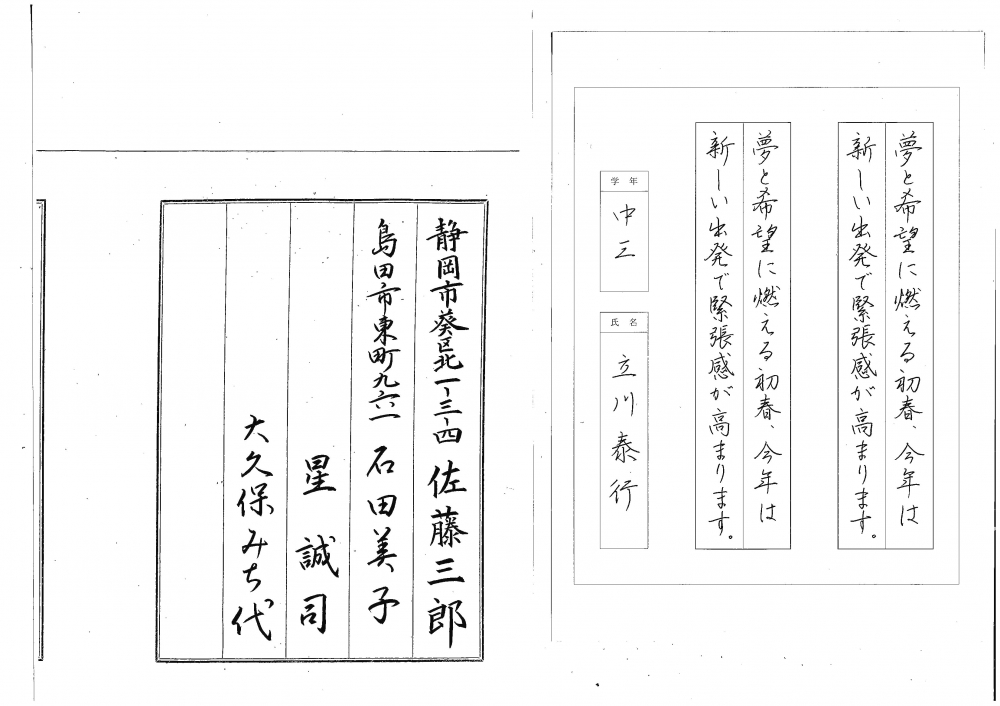 夢と希望に燃える初春、今年は
新しい出発で緊張感が高まります。
夢と希望に燃える初春、今年は
新しい出発で緊張感が高まります。
学年
中三
氏名
立川泰行
静岡市葵区北一-三-四 佐藤三郎
島田市東町九六一 石田美子
星 誠司
大久保みち代